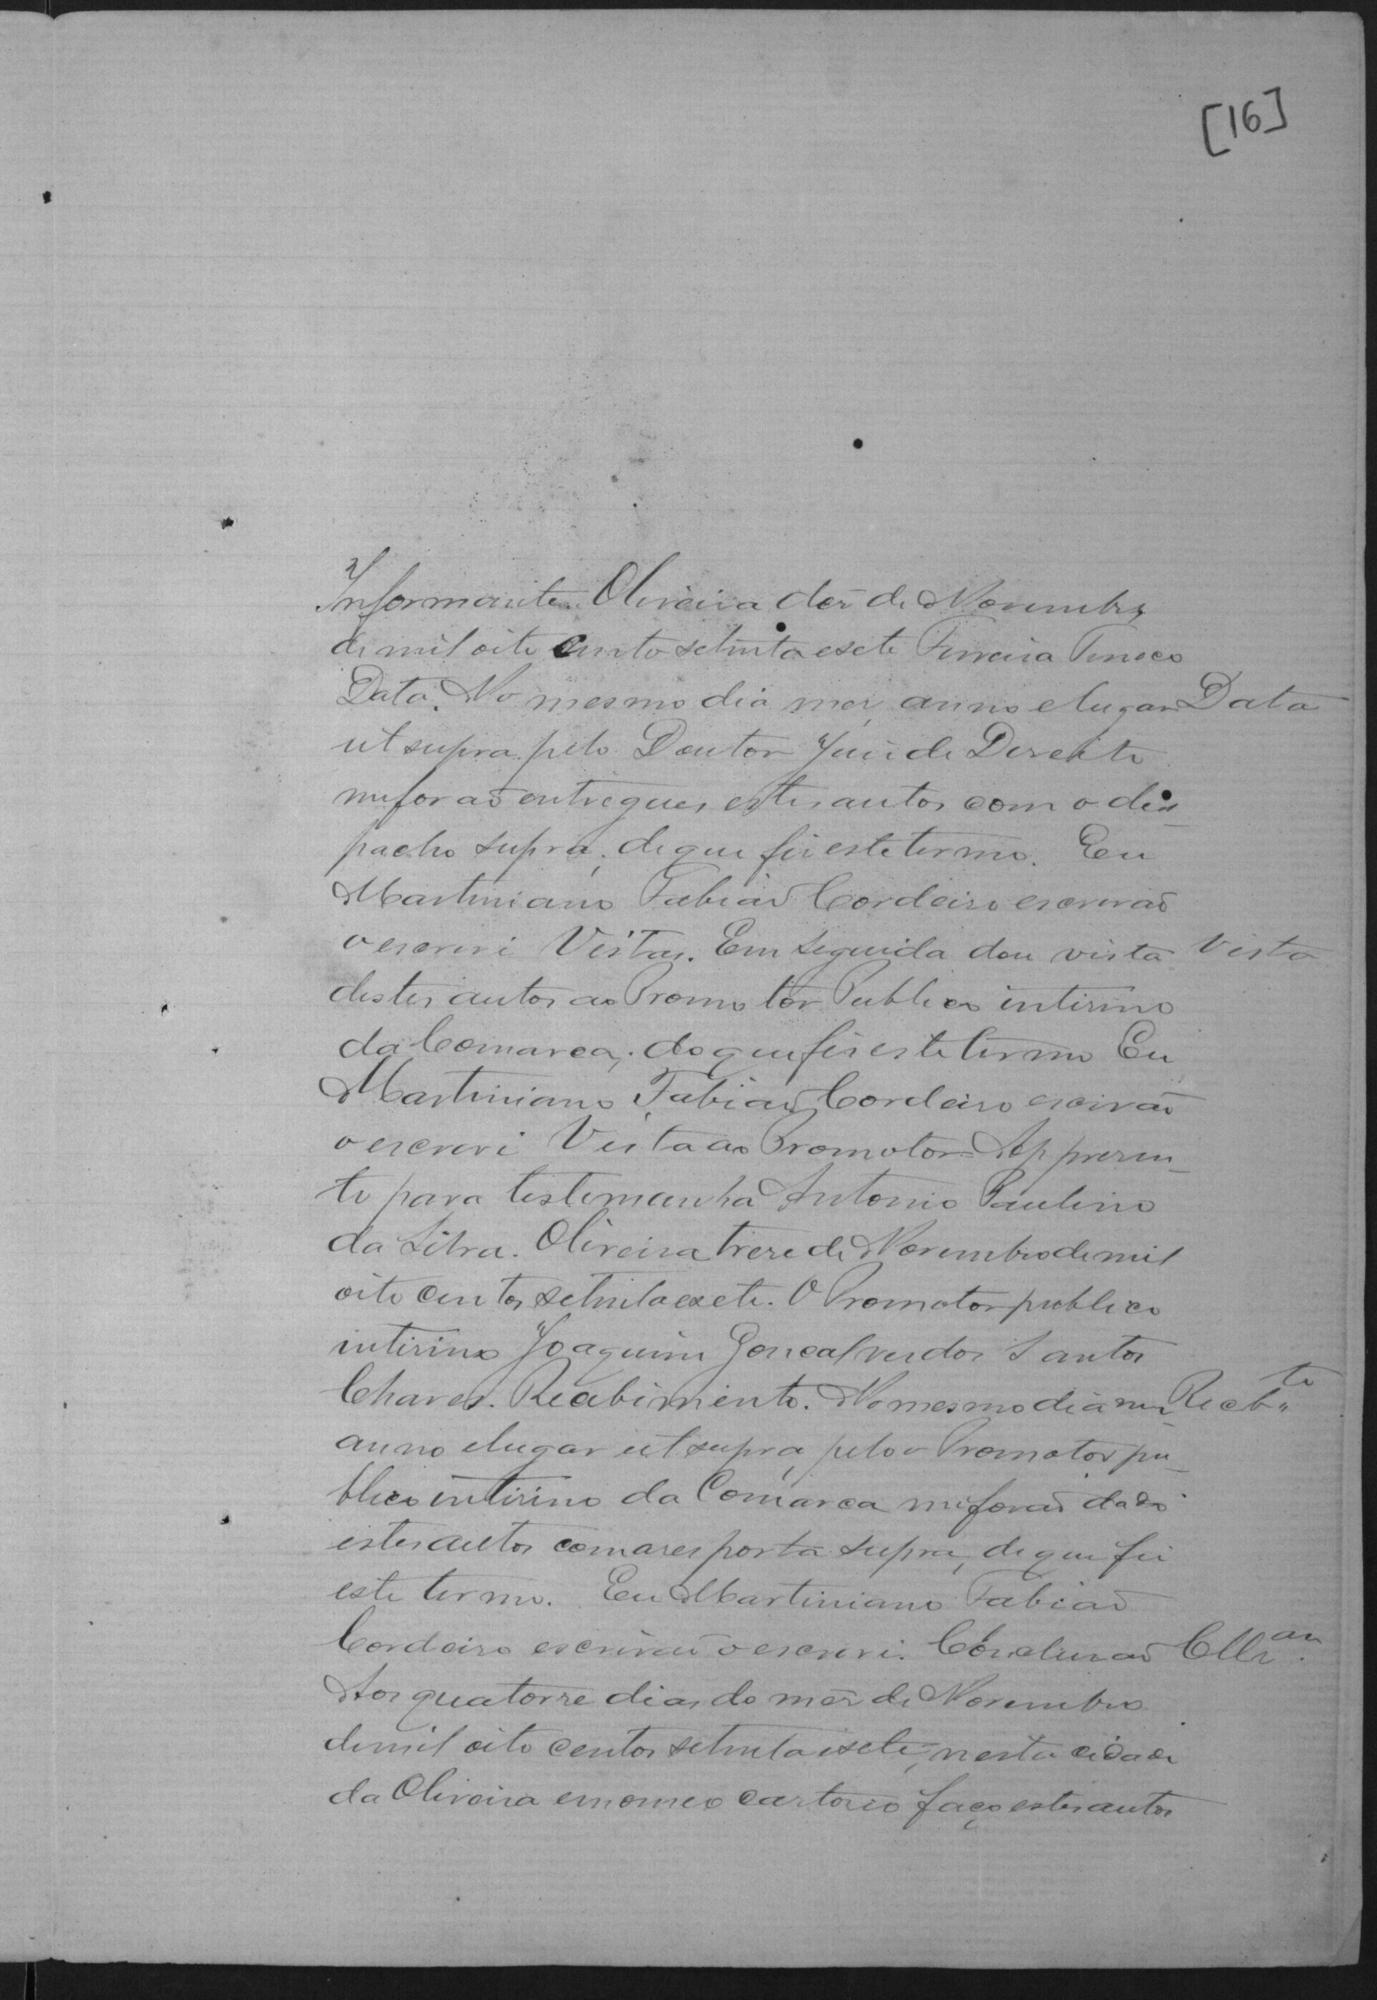 [16]
Informante. Oliveira dez de Novembro
de mil oito cento setenta e sete Ferreira Tinoco
Data. No mesmo dia mez, anno e lugar Data
ut supra pelo Doutor Juiz de Dereito
me forão entregues estes autos com o des
pacho supra, de que fiz este termo. Eu
Martiniano Fabião Cordeiro escrivão
o escrevi Vistas. Em seguida dou vista Vista
destes autos ao Promotor Publico interino
da Comarca, do que fis este termo Eu
Martiniano Fabião Cordeiro escrivão
o escrevi Vista ao Promotor = Appresen_
to para testemunha Antonio Paulino
da Silva. Oliveira treze de Novembro de mil
oito centos setenta e sete. O Promotor publico
interino Joaquim Gonçalves dos Santos
Chaves. Recebimento. No mesmo dia mez Recebto
anno e lugar ut supra, pelo o Promotor pu_
blico interino da Comarca me forão dado
estes autos com a resposta supra, de que fiz
este termo. Eu Martiniano Fabião
Cordeiro escrivão o escrevi. Conclusão Cllzan.
Aos quatorze dias do mez de Novembro
de mil oito centos setenta e sete, nesta cidade
da Oliveira em o meo cartorio faço estes autos